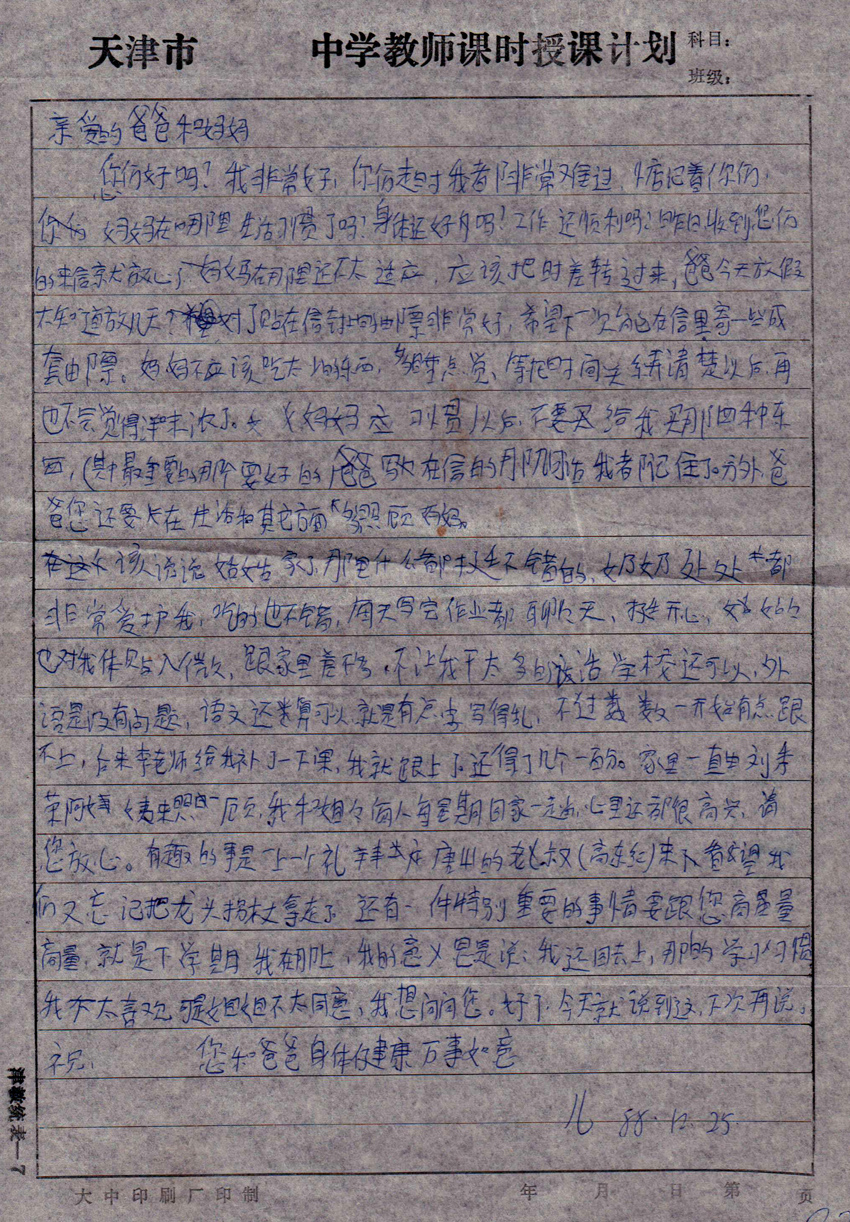 天津市 中学教师课时授课计划 科目：
班级：
亲爱的爸爸和妈妈
您们好吗？我非常好，你们走时我都非常难过，惦记着你们，
妈妈在哪里生活习惯了吗？身体还好吗？工作还顺利吗？昨日收到您们
的来信就放心了 妈妈在那里还不太适应，应该把时差转过来，爸爸今天放假
不知道放几天？对了贴在信封上的邮票非常好，希望下一次能在信里寄一些成
套邮票。妈妈不应该吃太少的东西，多睡点觉，等把时间关系弄清楚以后，再
也不会觉得洋味浓了。妈妈 习惯以后，不要忘给我买那四种东
西，(其中最重要的那个要好的) 爸爸 在信的 我都记住了。另外，爸
爸您还要在生活和其它方面多照顾妈妈。
该说说姑姑家了，那里什么都挺不错的，奶奶处处都
非常爱护我，吃的也不错，每天写完作业都聊聊天，挺开心，姑姑
也对我体贴入微，跟家里差不多，不让我干太多的活 学校还可以，外
语是没有问题，语文还算可以，就是有点字写得乱，不过数一开始有点跟
不上，后来李老师给我补了一下课，我就跟上了，还得了几个一百分。家里一直由刘秀
荣阿姨来照顾，我和姐姐每人每星期回家一走，心里还都很高兴，请
您放心。有趣的事是上一个礼拜 唐山的老叔(高东红)来 看望我
们又忘记把龙头拐杖拿走了 还有一件特别重要的事情要跟您商量
商量，就是下学期我在哪上，我的意思是说：我还回去上，那的学习习惯
我不太喜欢，可是姐姐不太同意，我想问问您。好了，今天就说到这，下次再说。
祝， 您和爸爸身体健康万事如意
儿 88.12.25
津教统表—7
大中印刷厂印制 年 月 日 第 页